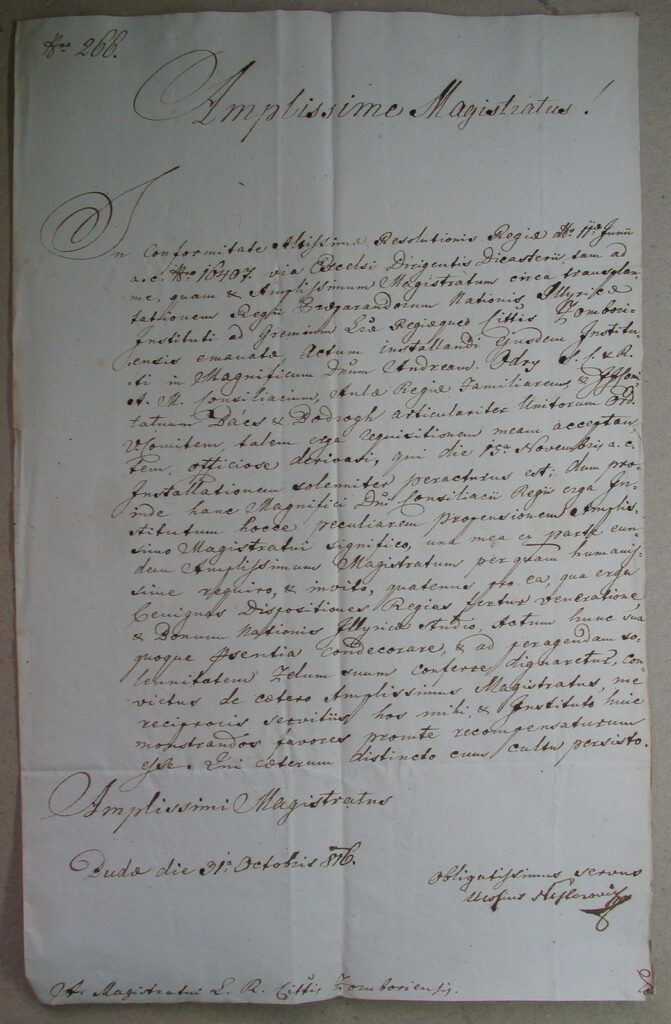 Nro 266.
Amplissime Magistratus!
In Conformitate Altissimæ Resolutionis Regiæ ddo 11æ Junii
a. c. Nro 16407. via Excelsi Dirigentis Dicasterii, tam ad
me, quam & Amplissimum Magistratum circa transplan-
tationem Regii Præparandorum Nationis Illyricæ
Instituti ad Gremium Lræ Regiæque Cittis Zombori-
ensis emanatæ, Actum installandi Ejusdem Institu-
ti in Magnificum Dnum Andream Odry S. C. & R.
A. M. Consiliarium, Aulæ Regiæ Familiarem, &
Bács & Bodrogh articulariter Unitorum Ord
V Comitem, talem erga requisitionem meam acceptan-
tem, officiose derivasi, qui die 15a Novembris a. c.
Installationem solemniter peracturus est; dum pro-
inde hanc Magnifici Dni Consiliarii Regii erga In-
stitutum hocce peculiarem propensionem Amplis-
simo Magistratui significo, una mea ex parte eun-
dem Amplissimum Magistratum perquam humanis-
sime requiro, & invito, quatenus pro ea, qua erga
benignas Dispositiones Regias fertur veneratione,
& Bonum Nationis Illyricæ studio, Actum hunc sua
quoque psentia condecorare, & ad peragendam so-
lennitatem Zelum suum conferre dignaretur, con-
victus de cætero Amplissimus Magistratus, me
reciprocis servitiis hos mihi, & Instituto huic
monstrandos favores promte recompensaturum
esse. Qui cæterum distincto cum cultu persisto.
Amplissimi Magistratus
Budæ die 31a Octobris 816.
Obligatissimus servus
Uros
A. Magistratui L. R. Cittis Zomboriensis.